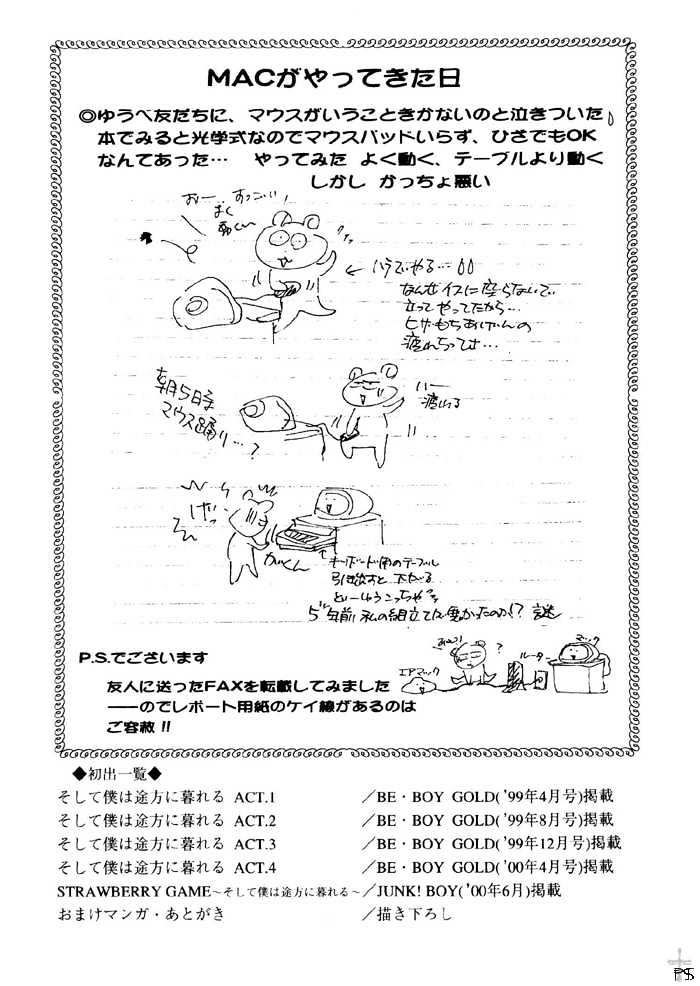 MACがやってきた日
◎ゆうべ友だちに、マウスがいうこときかないのと泣きついた
本でみると光学式なのでマウスパッドいらず、ひざでもOK
なんてあった… やってみた よく動く、テーブルより動く
しかし かっちょ悪い
おー すっごい!
よく
動くー
ハラでやる…
なんせイスに座らないで
立ってやってたから…
ヒザもちあげんの
疲れちってさ…
朝5時
マウス踊り…?
いー
疲れる
げっ
がくん
キーボード用のテーブル
引き出すと 下がる
といーゆうこっちゃ
5年前 私の組立てが悪かったのか!? 謎
P.S.でございます
友人に送ったFAXを転載してみました
――のでレポート用紙のケイ線があるのは
ご容赦!!
エアマック
?
ルータ
マック
◆初出一覧◆
そして僕は途方に暮れる ACT.1 /BE・BOY GOLD('99年4月号)掲載
そして僕は途方に暮れる ACT.2 /BE・BOY GOLD('99年8月号)掲載
そして僕は途方に暮れる ACT.3 /BE・BOY GOLD('99年12月号)掲載
そして僕は途方に暮れる ACT.4 /BE・BOY GOLD('00年4月号)掲載
STRAWBERRY GAME~そして僕は途方に暮れる~/JUNK! BOY('00年6月)掲載
おまけマンガ・あとがき /描き下ろし
PS